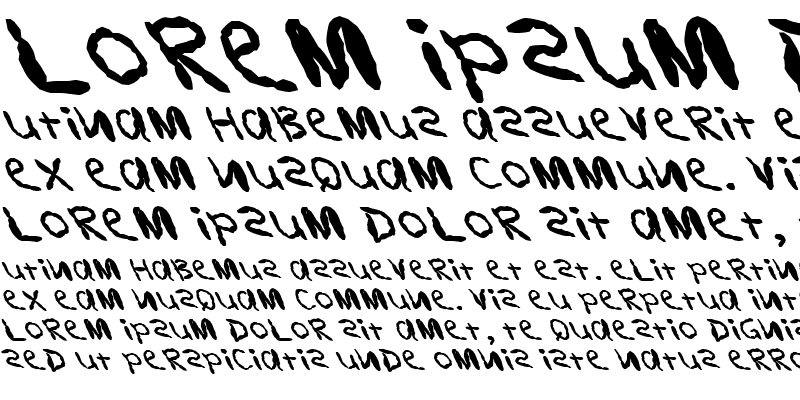 Lorem ipsum D
utinam Habemus assueverit e
ex eam nusquam commune. Vis
Lorem ipsum Dolor sit amet,
utinam Habemus assueverit et est. eLit pertin
ex eam nusquam commune. Vis eu perpetua int
Lorem ipsum Dolor sit amet, te Quaestio Dignis
sed ut perspiciatis unde omnis iste natus erro